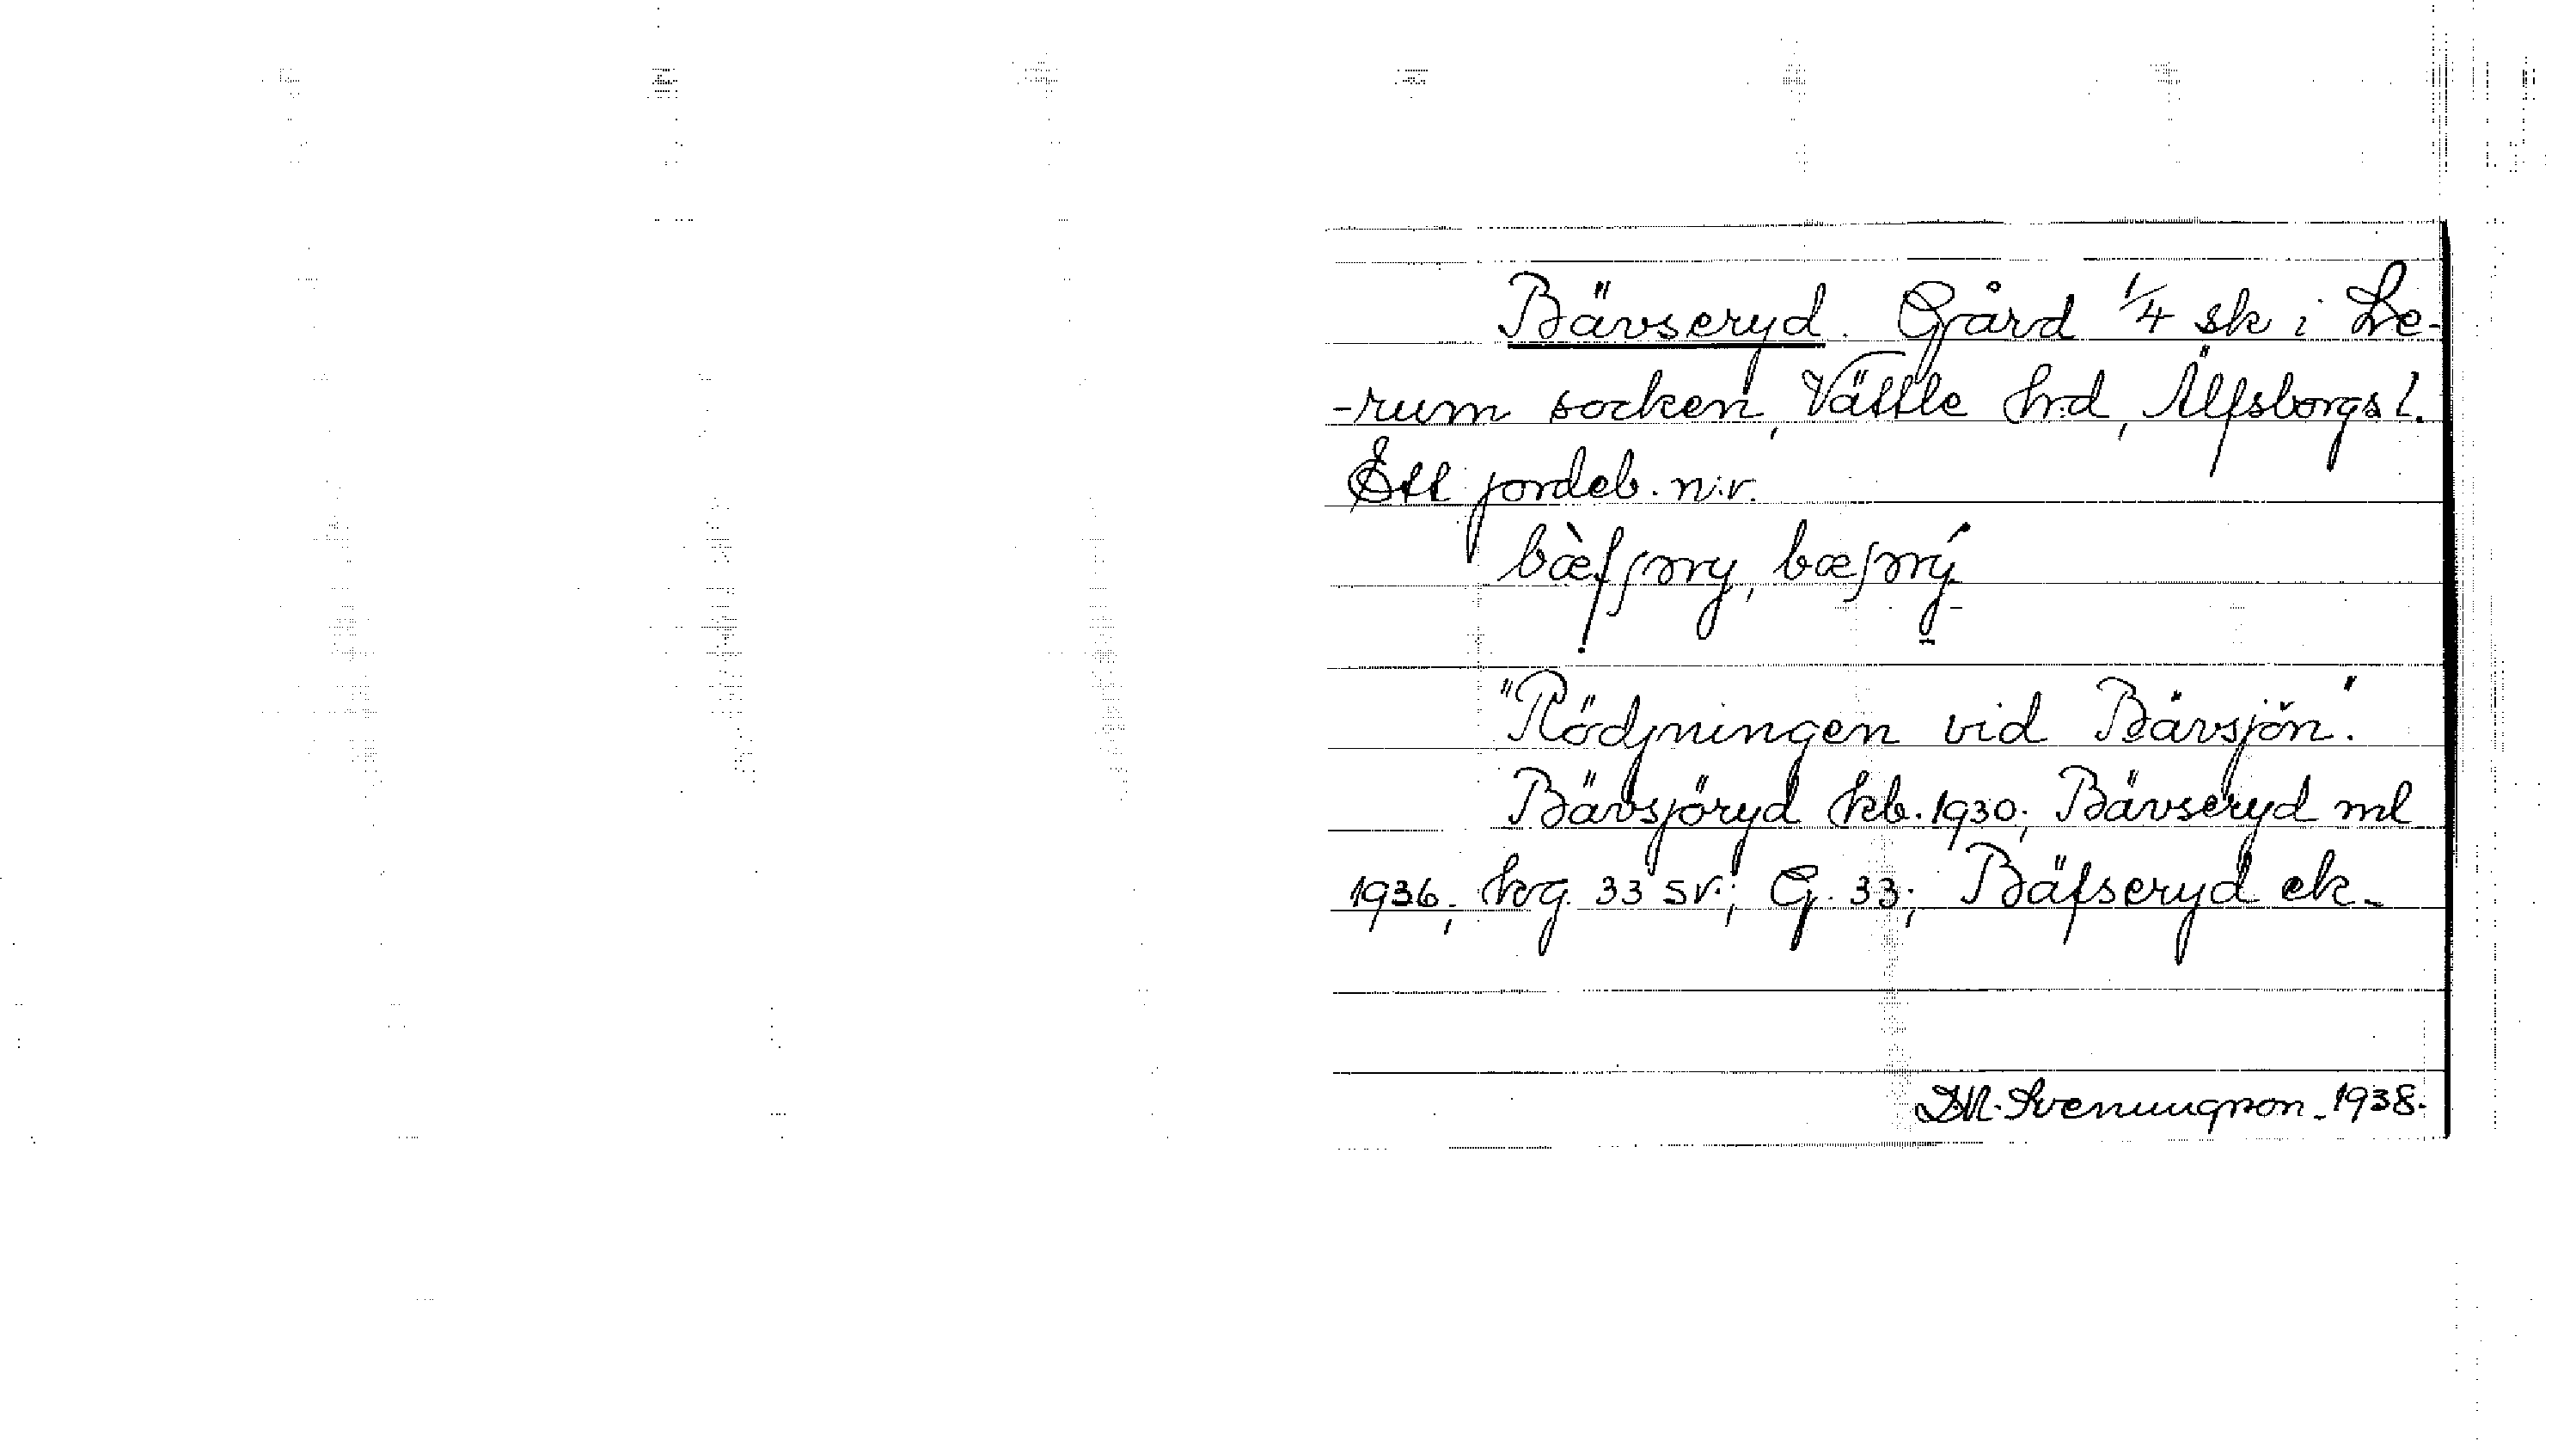 Bävseryd. Gård 1/4 sk i Le-
-rum socken, Vättle hrd, Älfsborgs l.
Ett jordeb. n:r.
"Rödjningen vid Bävsjön."
Bävsjöryd kb. 1930; Bävseryd ml
1936; hg. 33 sv.; G. 33; Bäfseryd ek.
D.M. Svenungsson_1938.